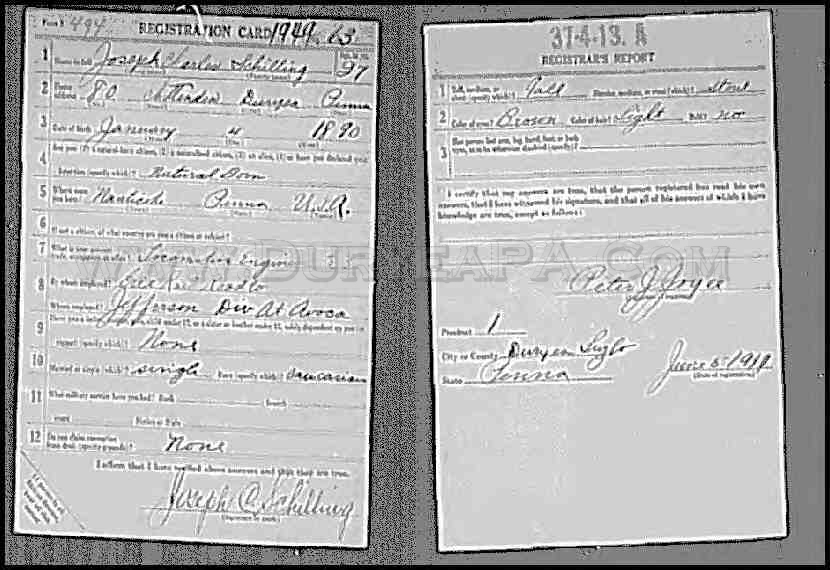 Form 1 494 REGISTRATION CARD 1949 63
1 Name in full Joseph Charles Schilling 27
2 Home address 80 Chittenden Duryea Penna
3 Date of birth January 4 1890
4 Are you (1) a natural-born citizen, (2) a naturalized citizen, (3) an alien, (4) or have you declared your
intention (specify which)? Natural Born
5 Where were you born? Nanticoke Penna U.S.A.
6 If not a citizen, of what country are you a citizen or subject?
7 What is your present trade, occupation, or office? Locomotive Engineer
8 By whom employed? Erie
Where employed? Jefferson Div At Avoca
9
support (specify which)? None
10 Married or single (which)? single Race (specify which)? Caucasian
11 What military service have you had? Rank Branch
years Nation or State
12 Do you claim exemption from draft (specify grounds)? None
I affirm that I have verified above answers and that they are true.
Joseph C. Schilling
(Signature or mark)
37-4-13. A
REGISTRAR'S REPORT
1 Tall, medium, or short (specify which)? Tall Slender, medium, or stout (which)? Stout
2 Color of eyes? Brown Color of hair? Light Bald? no
3 Has person lost arm, leg, hand, foot, or both eyes, or is he otherwise disabled (specify)?
I certify that my answers are true, that the person registered has read his own
answers, that I have witnessed his signature, and that all of his answers of which I have
knowledge are true, except as follows:
WWW.DURYEAPA.COM
Peter J Joyce
(Signature of registrar)
Precinct 1
City or County Duryea
State Penna June 5 - 1917
(Date of registration)